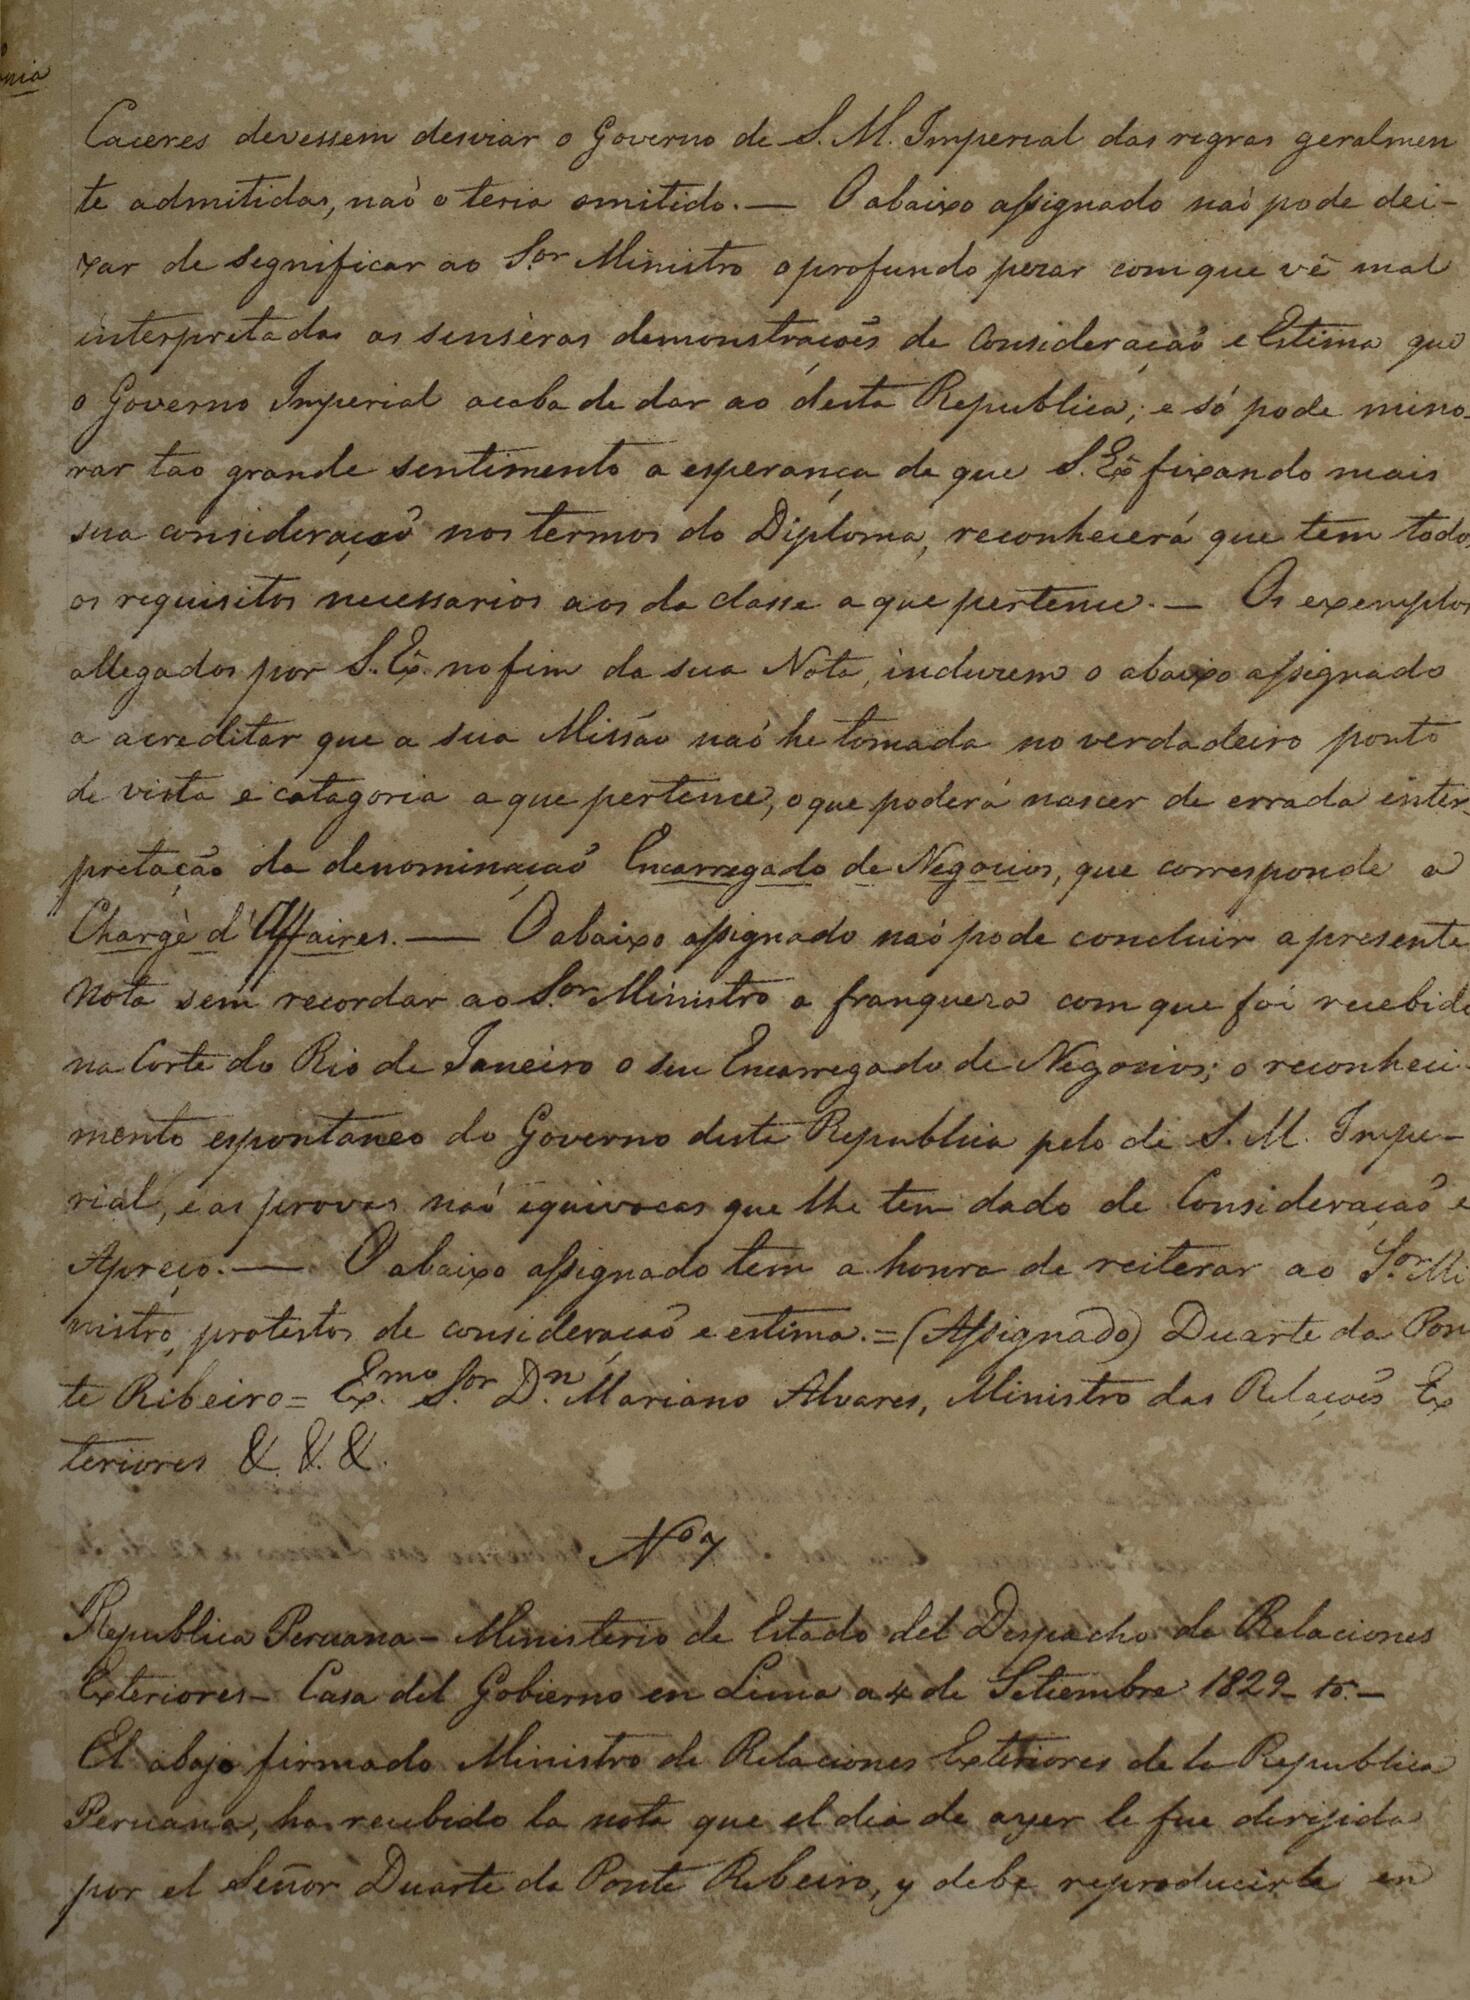 Caceres devessem desviar o Governo de S. M. Imperial das regras geralmen
te admitidas, naõ o teria omitido. — O abaixo assignado naõ pode dei-
xar de segnificar ao S.or Ministro o profundo pezar com que vê mal
interpretadas as senséras demonstraçoẽs de Consideraçaõ e Estima que
o Governo Imperial acaba de dar ao desta Republica; e só pode mino-
rar tao grande sentimento a esperança de que S. Ex.ª fixando mais
sua consideraçaõ nos termos do Diploma, reconhecerá que tem todos
os requisitos necessarios aos da classe a que pertence. — Os exemplos
allegados por S. Ex.ª no fim da sua Nota, induzem o abaixo assignado
a acreditar que a sua Missão naõ he tomada no verdadeiro ponto
de vista e catagoria a que pertence, o que poderá nascer de errada inter-
pretação da denominaçaõ Encarregado de Negocios, que corresponde a
Chargè d'Affaires. — O abaixo assignado naõ pode concluir a presente
Nota sem recordar ao S.or Ministro a franqueza com que foi recebido
na Corte do Rio de Janeiro o seu Encarregado de Negocios; o reconheci-
mento espontaneo do Governo desta Republica pelo de S. M. Impe-
rial, e as provas naõ equivocas que lhe tem dado de Consideraçaõ e
Apreço. — O abaixo assignado tem a honra de reiterar ao S.or Mi
nistro, protestos de consideraçaõ e estima. = (Assignado) Duarte da Pon
te Ribeiro = Ex.mo S.or D.n Mariano Alvares, Ministro das Relaçoẽs Ex
teriores &. &. &.
Nº 7
Republica Peruana - Ministerio de Estado del Despacho de Relaciones
Exteriores - Casa del Gobierno en Lima a 4 de Setiembre 1829 - 10. -
El abajo firmado Ministro de Relaciones Exteriores de la Republica
Peruana, ha recebido la nota que el dia de ayer le fue dirijida
por el Señor Duarte da Ponte Ribeiro, y debe reproducirle en